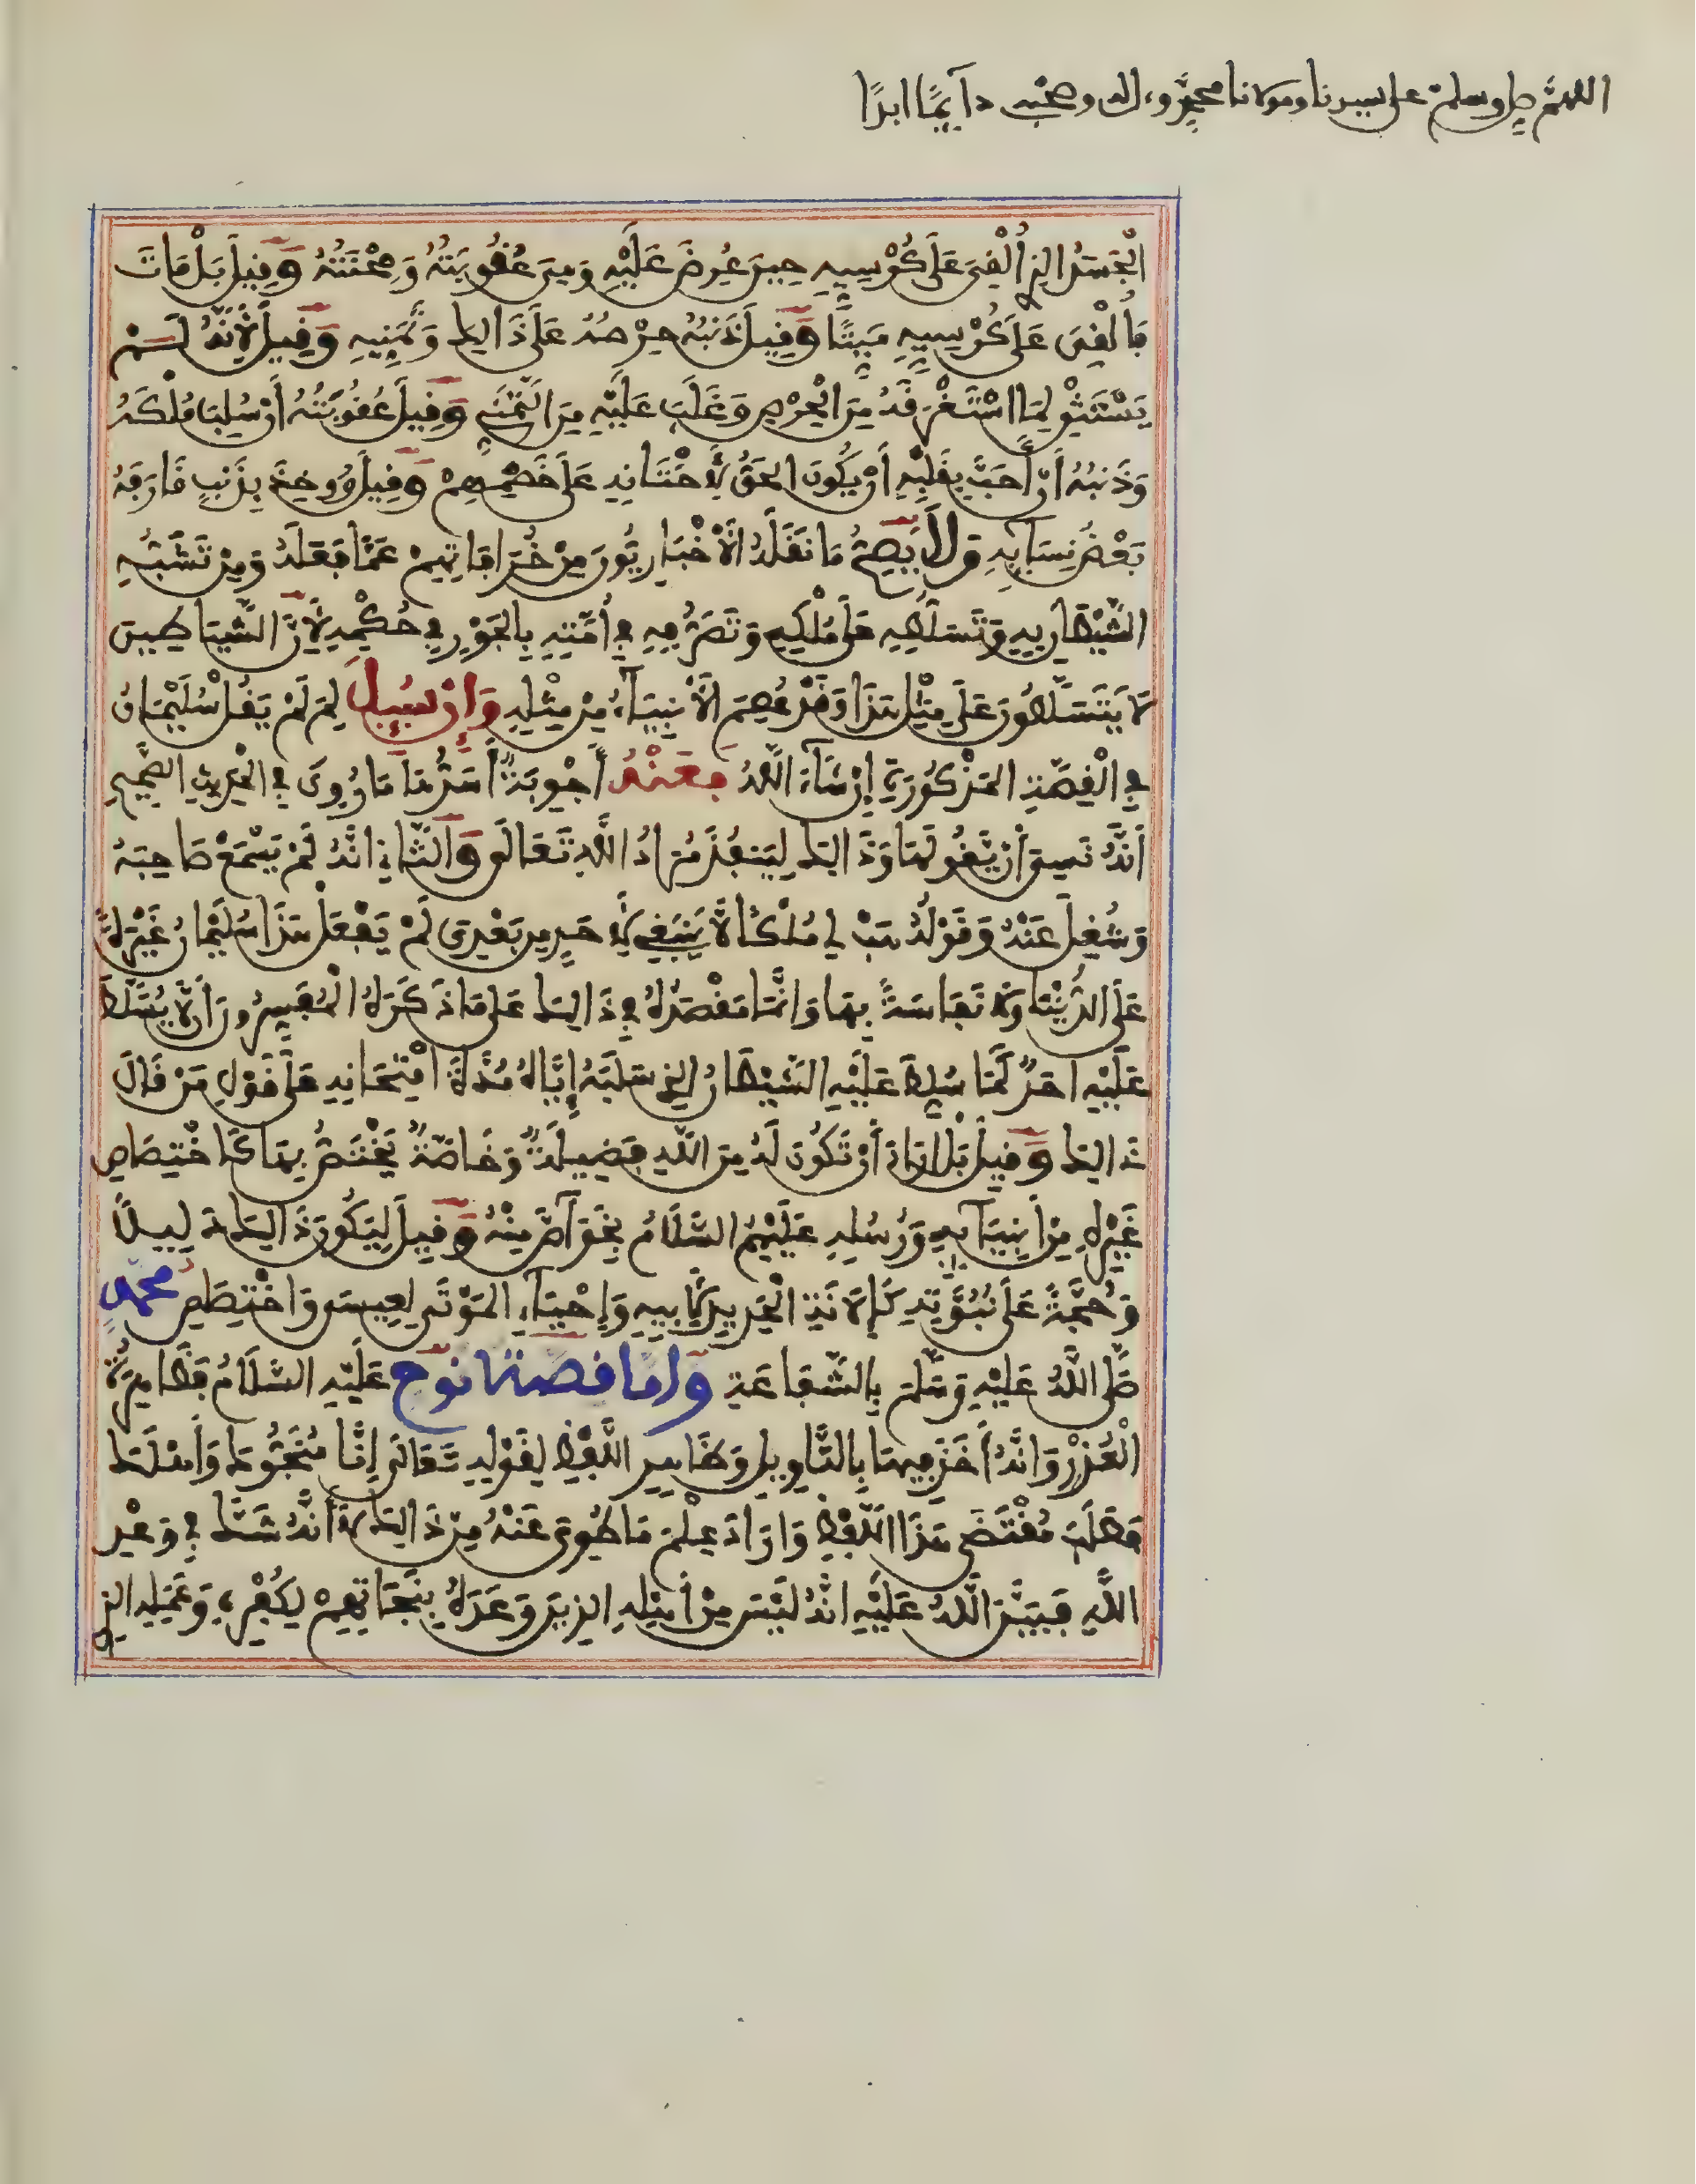 اللهم صل وسلم على سيدنا ومولانا محمد وءاله وصحبه دآيمًا ابدًا
الْجَسَدُ الذِ أُلْقِيَ عَلَى كُرْسِيِهِ حِينَ عُرِضَ عَلَيْهِ وَهِيَ عُقُوبَتُهُ وَمِحْنَتُهُ وَقِيلَ بَلْ مَاتَ
فَأُلْقِيَ عَلَى كُرْسِيِهِ مَيِّتًا وَقِيلَ ذَنْبُهُ حِرْصُهُ عَلَى ذَالِكَ وَتَمَنِّيهِ وَقِيلَ لِأَنَّهُ لَــمْ
يَسْتَثْنِ لِمَا اسْتَغْرَقَهُ مِنَ الْحِرْصِ وَغَلَبَ عَلَيْهِ مِنَ التَّمَنِّي وَقِيلَ عُقُوبَتُهُ أَنْ سُلِبَ مُلْكَهُ
وَذَنْبُهُ أَنْ أَحَبَّ بِقَلْبِهِ أَنْ يَكُونَ الحَقُّ لِأَخْتَانِهِ عَلَى خَصْمِهِمْ وَقِيلَ وُوخِذَ بِذَنْبٍ قَارَفَهُ
بَعْضُ نِسَآيِهِ وَلَا يَصِحُّ مَا نَقَلَهُ الْأَخْبَارِيُّونَ مِنْ خُرَافَاتِهِمْ عَمَّا فَعَلَهُ وَمِنْ تَشَبُّهِ
الشَّيْطَانِ بِهِ وَتَسَلُّطِهِ عَلَى مُلْكِهِ وَتَصَرُّفِهِ فِي أُمَّتِهِ بِالْجَوْرِ فِي حُكْمِهِ لِأَنَّ الشَّيَاطِينَ
لَا يَتَسَلَّطُونَ عَلَى مِثْلِ هَذَا وَقَدْ عُصِمَ الْأَنْبِيَآءُ مِنْ مِثْلِهِ وَإِنْ سُيِلَ لِمَ لَمْ يَقُلْ سُلَيْمَانُ
فِي الْقِصَّةِ المَذْكُورَةِ إِنْ شَآءَ اللَّهُ فَعَنْهُ أَجْوِبَةٌ أَسَدُّهَا مَا رُوِيَ فِي الْحَدِيثِ الصَّحِيحِ
أَنَّهُ نَسِيَ أَنْ يَّقُولَهَا وَذَالِكَ لِيَنْفُذَ مُرَادُ اللَّهِ تَعَالَى وَالثَّانِي أَنَّهُ لَمْ يَسْمَعْ صَاحِبَهُ
وَشُغِلَ عَنْهُ وَقَوْلُهُ هَبْ لِي مُلْكًا لَّا يَنْبَغِي لِأَحَدٍ مِنْ بَعْدِيَ لَمْ يَفْعَلْ هَذَا سُلَيْمَانُ غَيْرَةً
عَلَى الدُّنْيَا وَلَا نَفَاسَةً بِهَا وَإِنَّمَا مَقْصَدُهُ فِي ذَالِكَ عَلَى مَا ذَكَرَهُ الْمُفَسِّرُونَ أَلَّا يُسَلَّطَ
عَلَيْهِ أَحَدٌ كَمَا سُلِّطَ عَلَيْهِ الشَّيْطَانُ الذِي سَلَبَهُ إِيَّاهُ مُدَّةَ امْتِحَانِهِ عَلَى قَوْلِ مَنْ قَالَ
ذَالِكَ وَقِيلَ بَلْ أَرَادَ أَنْ تَكُونَ لَهُ مِنَ اللَّهِ فَضِيلَةٌ وَخَاصَّةٌ يَخْتَصُّ بِهَا كَاخْتِصَاصِ
غَيْرِهِ مِنْ أَنْبِيَآيِهِ وَرُسُلِهِ عَلَيْهِمُ السَّلَامُ بِخَوَآصَّ مِنْهُ وَقِيلَ لِيَكُونَ ذَالِكَ دَلِيلاً
وَحُجَّةً عَلَى نُبُوَّتِهِ كَإِلَانَةِ الْحَدِيدِ لِأَبِيهِ وَإِحْيَآءِ المَوْتَى لِعِيسَى وَاخْتِصَاصِ مُحَمَّدٍ
صَلَّى اللَّهُ عَلَيْهِ وَسَلَّمَ بِالشَّفَاعَةِ وَأَمَّا قِصَّةُ نُوحٍ عَلَيْهِ السَّلَامُ فَظَاهِرَةُ
الْعُذْرِ وَأَنَّهُ أَخَذَ فِيهَا بِالتَّأوِيلِ وَظَاهِرِ اللَّفْظِ لِقَوْلِهِ تَعَالَى إِنَّا مُنَجُّوكَ وَأَهْلَكَ
فَطَلَبَ مُقْتَضَى هَذَا اللَّفْظِ وَأَرَادَ عِلْمَ مَا طُوِيَ عَنْهُ مِنْ ذَالِكَ لَا أَنَّهُ شَكَّ فِي وَعْدِ
اللَّهِ فَبَيَّنَ اللَّهُ عَلَيْهِ أَنَّهُ لَيْسَ مِنْ أَهْلِهِ الذِينَ وَعَدَهُ بِنَجَاتِهِمْ لِكُفْرِهِ وَعَمَلِهِ الذِي